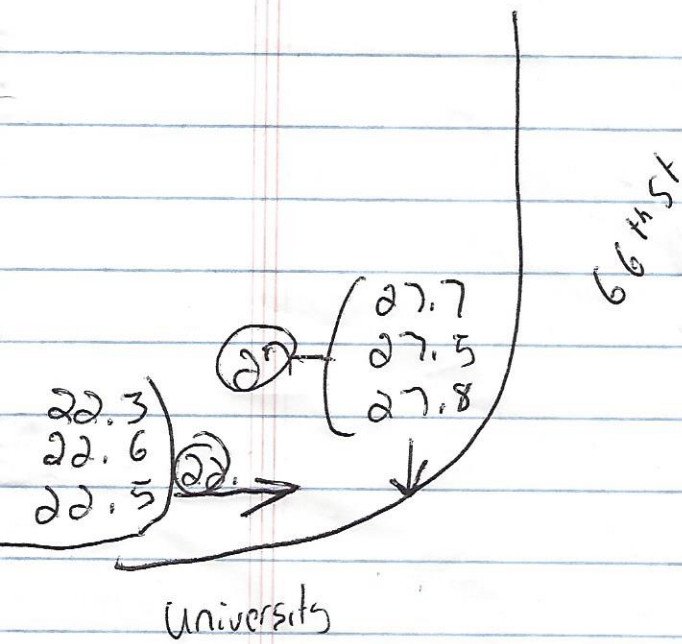 66th St
27.7
27 27.5
27.8
22.3
22.6 22.
22.5
University